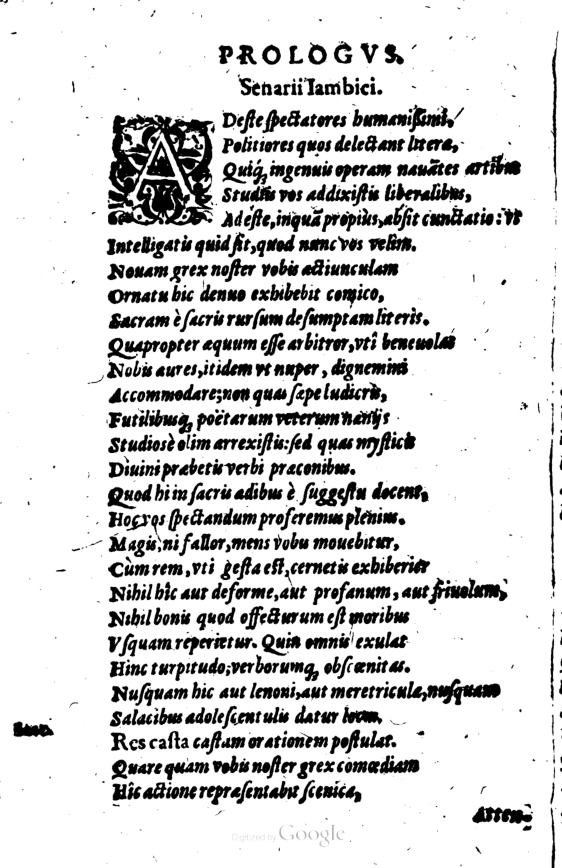 PROLOGVS.
Senarii Iambici.
ADeſte ſpectatores humaniſſimi,
Politiores quos delectant literæ,
Quiq; ingenuis operam nauãtes artibus
Studiis vos addixiſtis liberalibus,
Adeſte, inquã propius, abſit cunctatio: vt
Intelligatis quid ſit, quod nunc vos velim.
Nouam grex noſter vobis actiunculam
Ornatu hic denuo exhibebit comico,
Sacram è ſacris rurſum deſumptam literis.
Quapropter æquum eſſe arbitror, vti beneuolas
Nobis aures, itidem vt nuper, dignemini
Accommodare; non quas ſæpe ludicris,
Futilibusq; poëtarum veterum nænijs
Studiosè olim arrexiſtis: ſed quas myſticis
Diuini præbetis verbi præconibus.
Quod hi in ſacris ædibus è ſuggeſtu docent,
Hoc vos ſpectandum proferemus plenius.
Magis, ni fallor, mens vobis mouebitur,
Cùm rem, vti geſta eſt, cernetis exhiberier
Nihil hîc aut deforme, aut profanum, aut friuolum,
Nihil bonis quod offecturum eſt moribus
Vſquam reperietur. Quin omnis exulat
Hinc turpitudo, verborumq; obſcœnitas.
Nuſquam hic aut lenoni, aut meretriculæ, nuſquam
Salacibus adoleſcentulis datur locus,
Res caſta caſtam orationem poſtulat.
Quare quam vobis noſter grex comœdiam
Hîc actione repræſentabit ſcenica,
Atten-
Digitized by Google